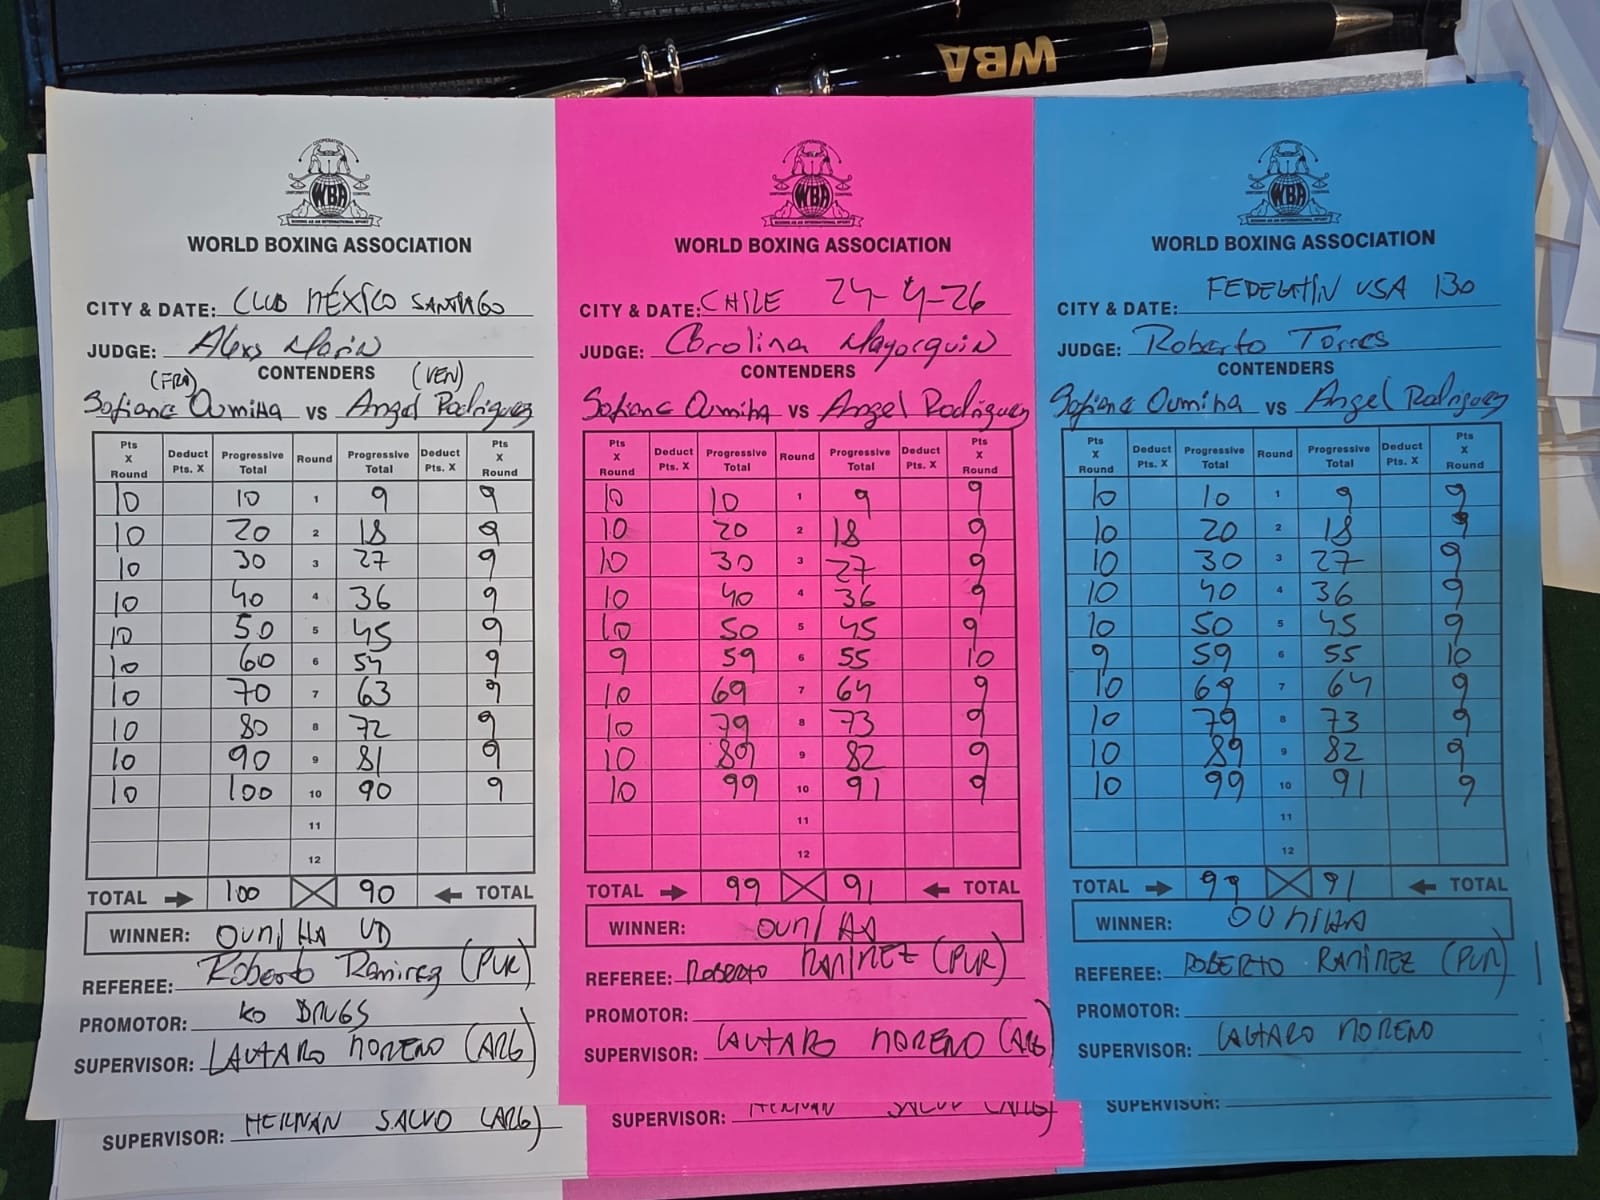 WBA
COOPERATION
UNIFORMITY CONTROL
WBA
BOXING AS AN INTERNATIONAL SPORT
WORLD BOXING ASSOCIATION
CITY & DATE: CLUB MÉXICO SANTIAGO
JUDGE: Alexs Marin
(FRA) CONTENDERS (VEN)
Sofiane Oumiha VS Angel Rodriguez
Pts X Round Deduct Pts. X Progressive Total Round Progressive Total Deduct Pts. X Pts X Round
10 10 1 9 9
10 20 2 18 9
10 30 3 27 9
10 40 4 36 9
10 50 5 45 9
10 60 6 54 9
10 70 7 63 9
10 80 8 72 9
10 90 9 81 9
10 100 10 90 9
11
12
TOTAL 100 90 TOTAL
WINNER: OUMIHA UD
REFEREE: Roberto Ramirez (PUR)
PROMOTOR: KO DRUGS
SUPERVISOR: LAUTARO MORENO (ARG)
SUPERVISOR: HERNAN SALVO (ARG)
WBA
WORLD BOXING ASSOCIATION
CITY & DATE: CHILE 24-4-26
JUDGE: Carolina Mayorquin
CONTENDERS
Sofiane Oumiha VS Angel Rodriguez
Pts X Round Deduct Pts. X Progressive Total Round Progressive Total Deduct Pts. X Pts X Round
10 10 1 9 9
10 20 2 18 9
10 30 3 27 9
10 40 4 36 9
10 50 5 45 9
9 59 6 55 10
10 69 7 64 9
10 79 8 73 9
10 89 9 82 9
10 99 10 91 9
11
12
TOTAL 99 91 TOTAL
WINNER: OUMIHA
REFEREE: ROBERTO RAMIREZ (PUR)
PROMOTOR:
SUPERVISOR: LAUTARO MORENO (ARG)
SUPERVISOR: HERNAN SALVO (ARG)
WBA
WORLD BOXING ASSOCIATION
CITY & DATE: FEDELATIN USA 130
JUDGE: Roberto Torres
CONTENDERS
Sofiane Oumiha VS Angel Rodriguez
Pts X Round Deduct Pts. X Progressive Total Round Progressive Total Deduct Pts. X Pts X Round
10 10 1 9 9
10 20 2 18 9
10 30 3 27 9
10 40 4 36 9
10 50 5 45 9
9 59 6 55 10
10 69 7 64 9
10 79 8 73 9
10 89 9 82 9
10 99 10 91 9
11
12
TOTAL 99 91 TOTAL
WINNER: OUMIHA
REFEREE: ROBERTO RAMIREZ (PUR)
PROMOTOR:
SUPERVISOR: LAUTARO MORENO
SUPERVISOR: